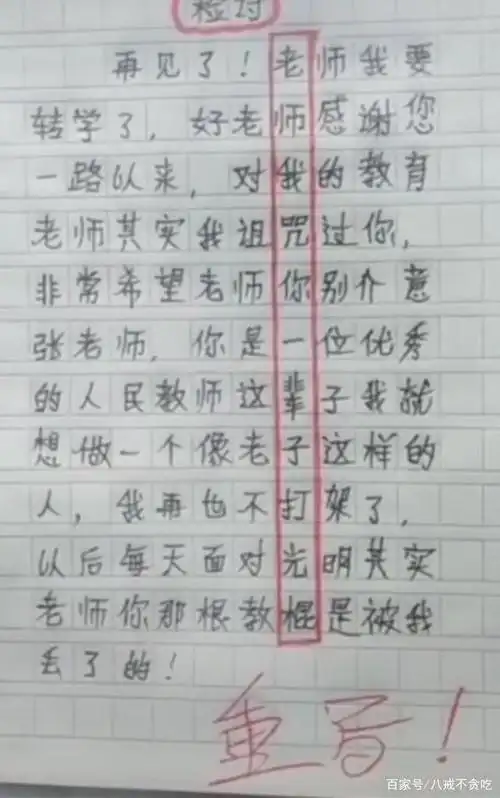 检讨
再见了！老师我要
转学了，好老师感谢您
一路以来，对我的教育
老师其实我诅咒过你，
非常希望老师你别介意
张老师，你是一位优秀
的人民教师这辈子我就
想做一个像老子这样的
人，我再也不打架了，
以后每天面对光明其实
老师你那根教棍是被我
丢了的！
重写！
百家号/八戒不贪吃